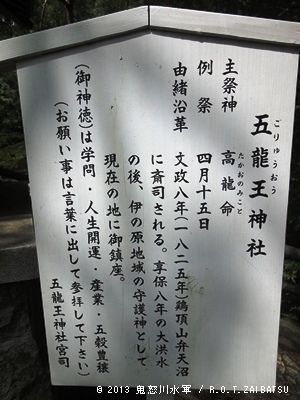 五龍王神社
ごりゅうおう
主祭神 高龍命
たかおのみこと
例祭 四月十五日
由緒沿革 文政八年(一八二五年)鶏頂山弁天沼
に斎司される。享保八年の大洪水
の後、伊の原地域の守護神として
現在の地に御鎮座。
(御神徳は学問・人生開運・産業・五穀豊穣
(お願い事は言葉に出して参拝して下さい)
五龍王神社宮司
© 2013 鬼怒川水軍 / R.O.T.ZAIBATSU